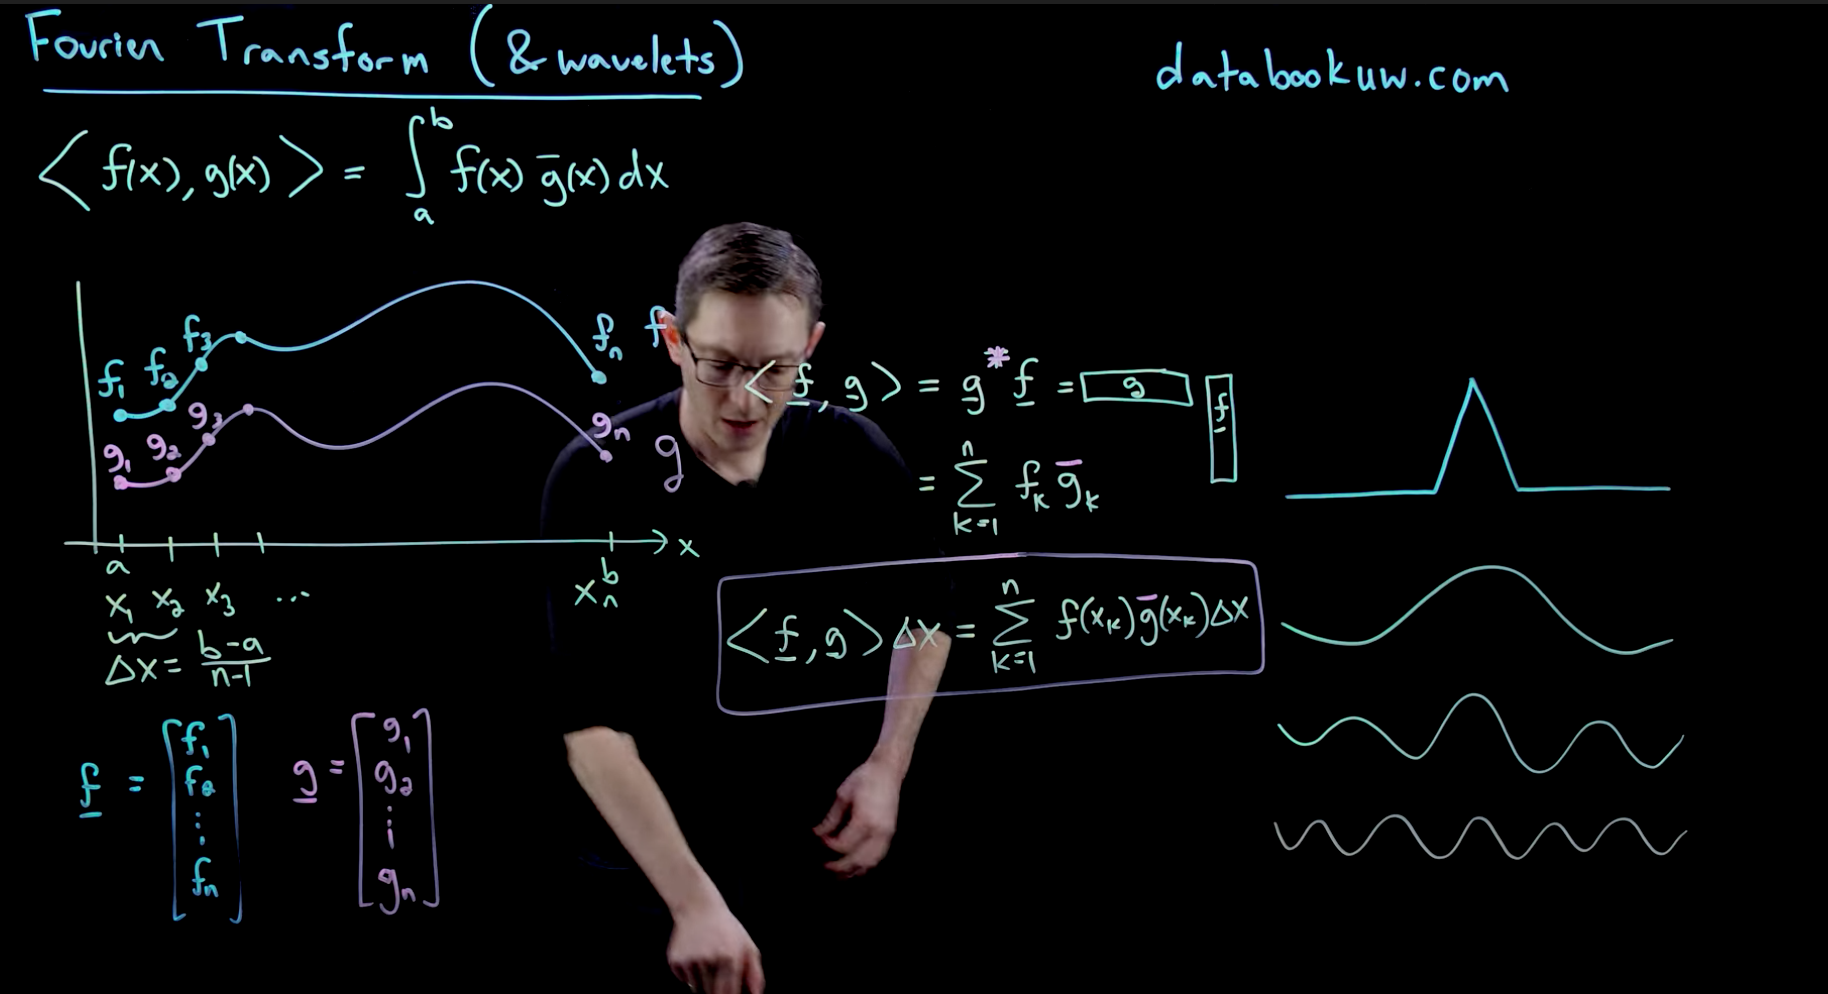 Fourier Transform (& wavelets)
databookuw.com
⟨ f(x), g(x) ⟩ = ∫ₐᵇ f(x) g̅(x) dx
f₁ f₂ f₃ fₙ f
g₁ g₂ g₃ gₙ g
a b x
x₁ x₂ x₃ ... xₙ
Δx = (b-a)/(n-1)
f = [f₁ f₂ ⋮ fₙ]
g = [g₁ g₂ ⋮ gₙ]
⟨ f, g ⟩ = g* f = g f
= Σₖ₌₁ⁿ fₖ g̅ₖ
⟨ f, g ⟩ Δx = Σₖ₌₁ⁿ f(xₖ) g̅(xₖ) Δx